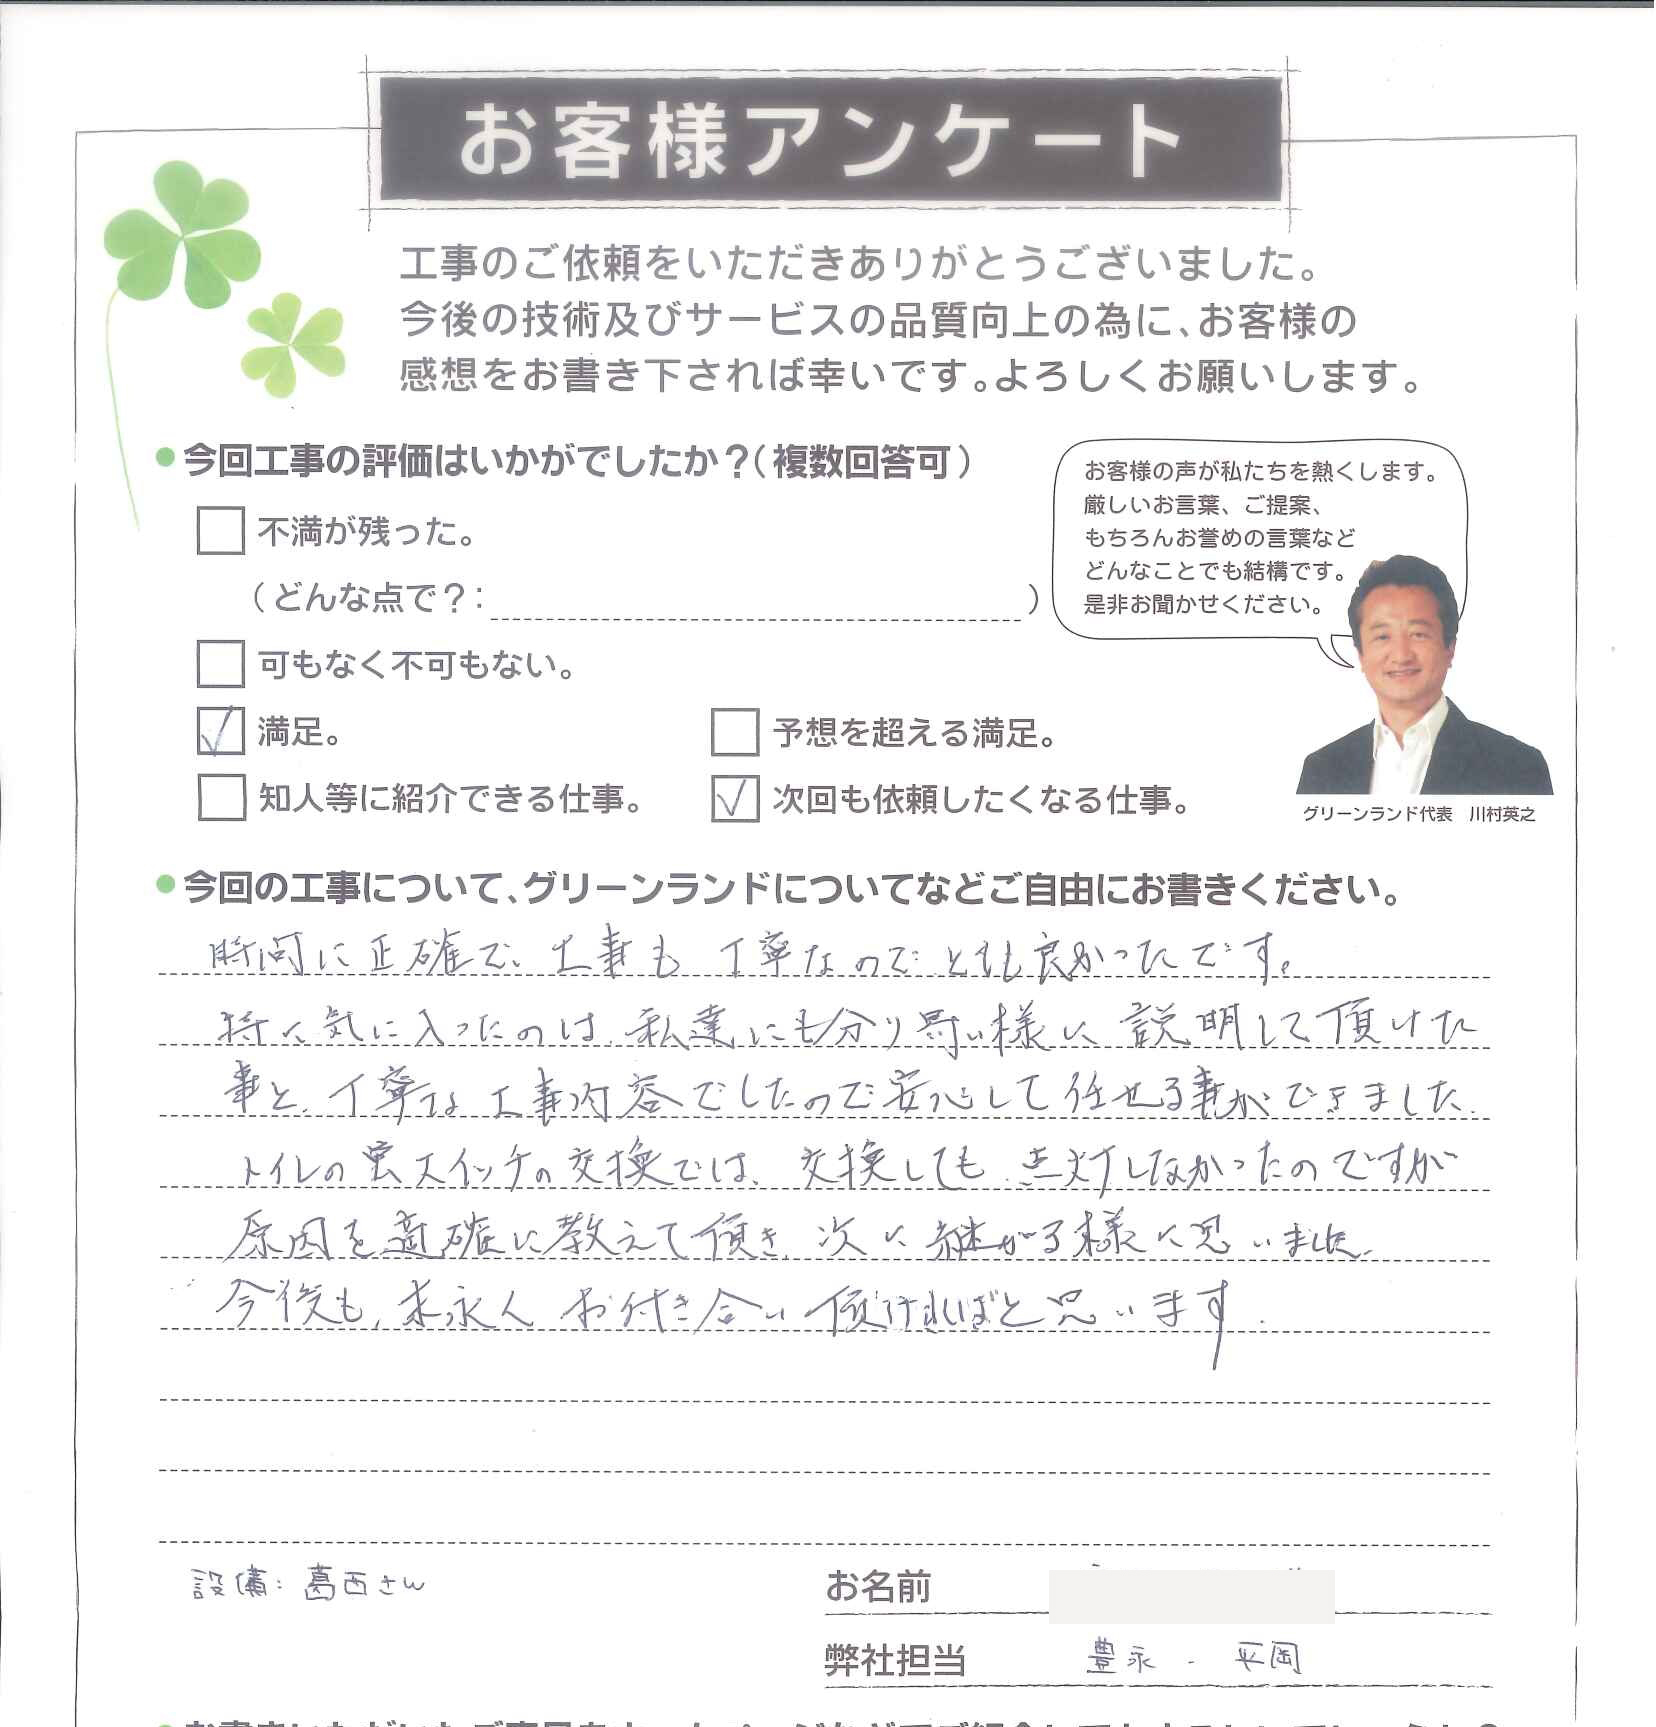 お客様アンケート
工事のご依頼をいただきありがとうございました。
今後の技術及びサービスの品質向上の為に、お客様の
感想をお書き下されば幸いです。よろしくお願いします。
●今回工事の評価はいかがでしたか？（複数回答可）
不満が残った。
（どんな点で？：　）
可もなく不可もない。
満足。
予想を超える満足。
知人等に紹介できる仕事。
次回も依頼したくなる仕事。
お客様の声が私たちを熱くします。
厳しいお言葉、ご提案、
もちろんお誉めの言葉など
どんなことでも結構です。
是非お聞かせください。
グリーンランド代表　川村英之
●今回の工事について、グリーンランドについてなどご自由にお書きください。
時間に正確で、工事も丁寧なのでとても良かったです。
特に気に入ったのは、私達にも分り易い様に説明して頂けた
事と、丁寧な工事内容でしたので安心して任せる事ができました。
トイレの蛍スイッチの交換では、交換しても点灯しなかったのですが
原因を適確に教えて頂き、次に継がる様に思いました。
今後も、末永くお付き合い頂ければと思います.
設備：葛西さん
お名前
弊社担当　豊永 - 平岡